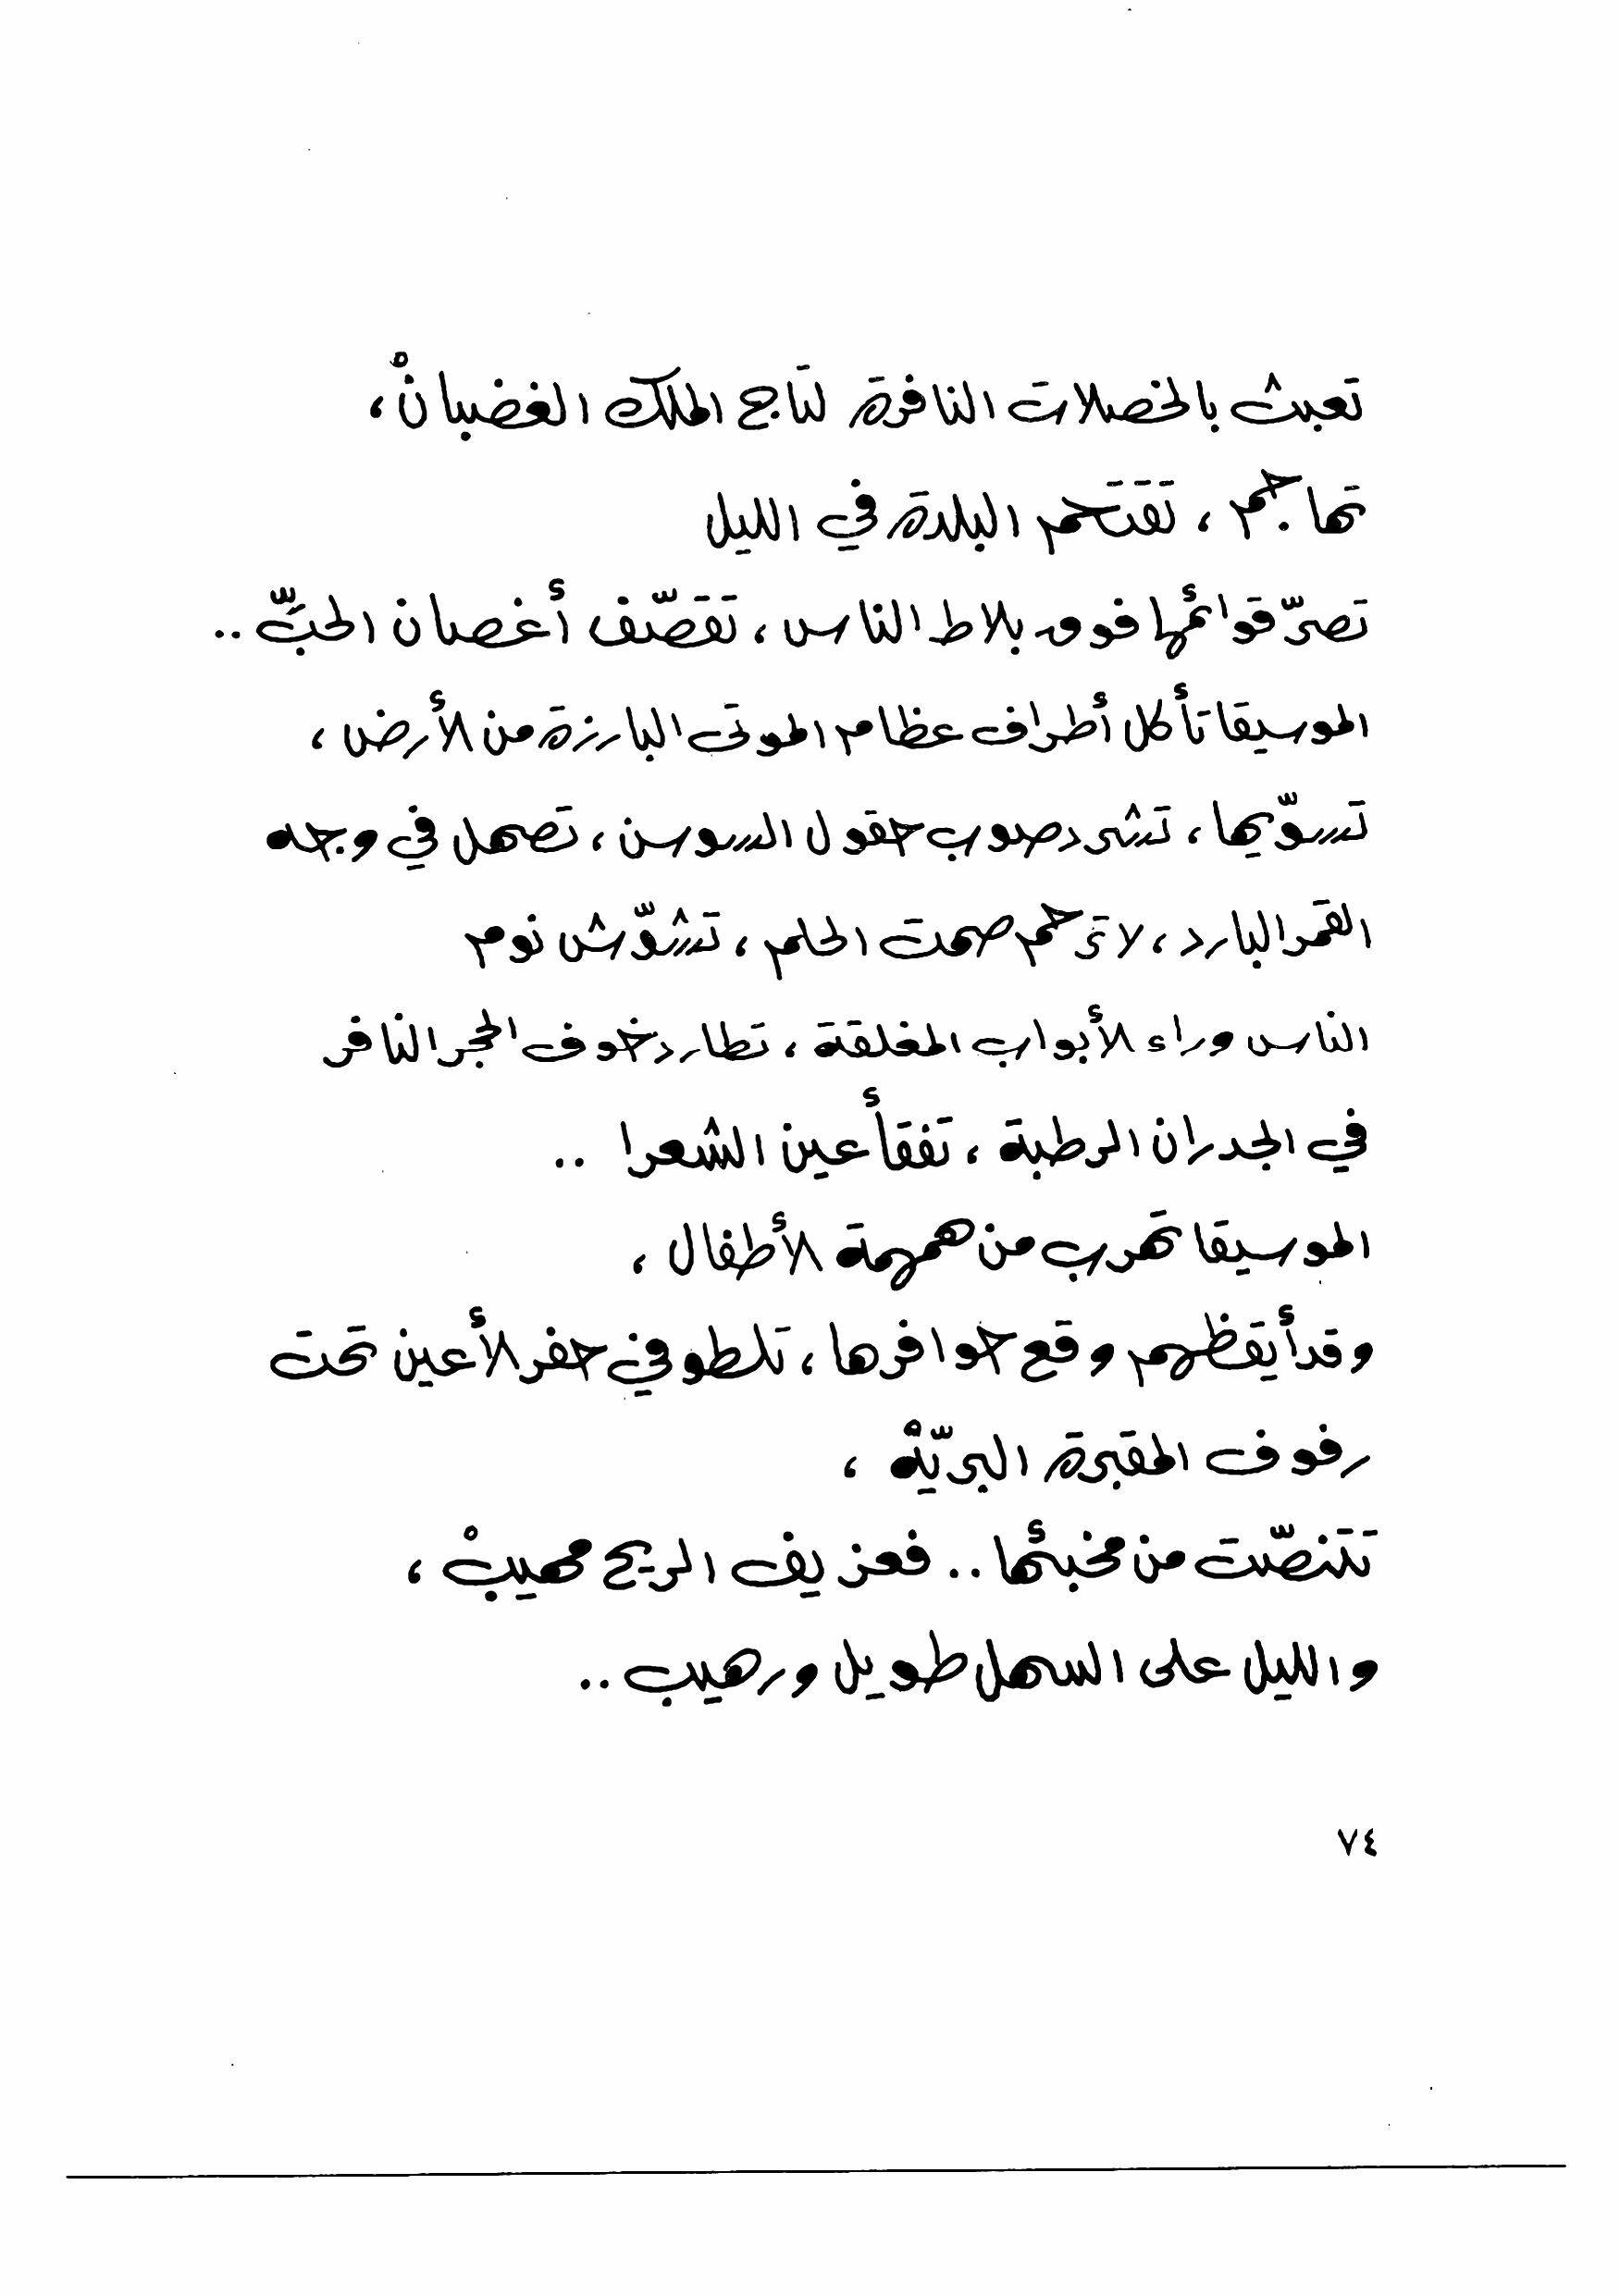 تعبث بالخصلات النافرة لتاج الملك الغضبانْ ،
تهاجم ، تقتحم البلدة في الليل
تصرّ قوائمها فوق بلاط الناس ، تقصّف أغصان الحبّ ..
الموسيقا تأكل أطراف عظام الموتى البارزة من الأرض ،
تسوّيها ، تشرد صوب حقول السوسن ، تصهل في وجه
القمر البارد ، لا ترحم صمت الحلم ، تشوّش نوم
الناس وراء الأبواب المغلقة ، تطارد خوف الحجر النافر
في الجدران الرطبة ، تفقأ عين الشعرا ..
الموسيقا تهرب من همهمة الأطفال ،
وقد أيقظهم وقع حوافرها ، تلطو في حفر الأعين تحت
رفوف المقبرة البريّهْ ،
تتنصّت من مخبئها .. فعزيف الريح مهيبْ ،
والليل على السهل طويل ورهيب ..
٧٤